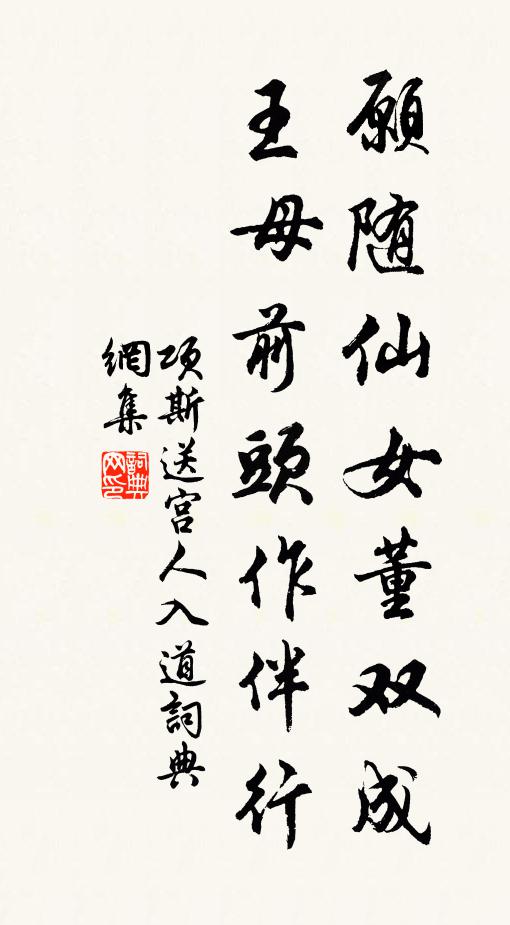 願随仙女董双成
王母前頭作伴行
項斯送宫人入道詞典
網集
詞典网印